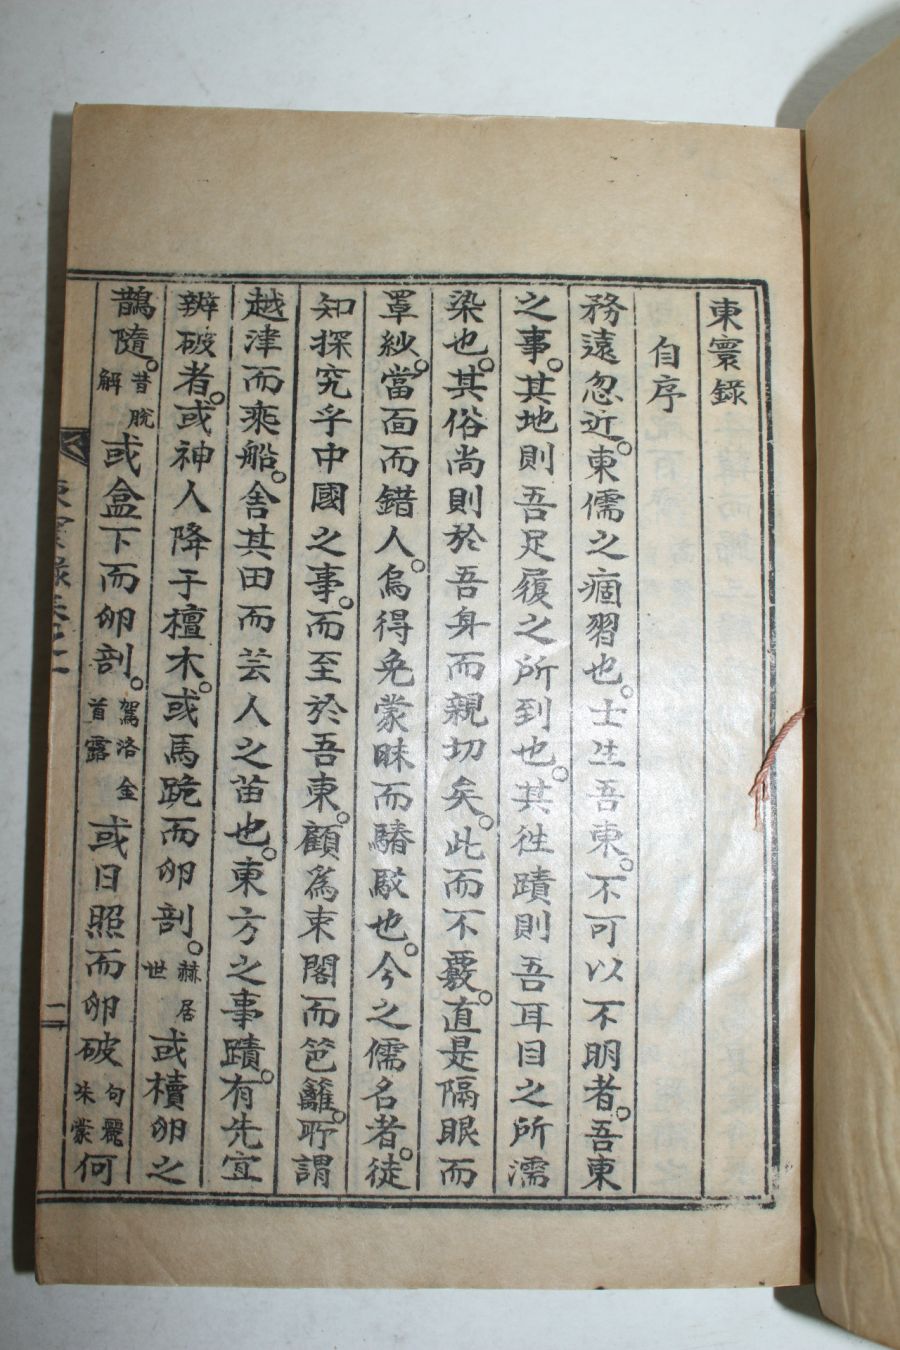 東寰錄
自序
務遠忽近。東儒之痼習也。士生吾東。不可以不明者。吾東
之事。其地則吾足履之所到也。其徃蹟則吾耳目之所濡
染也。其俗尚則於吾身而親切矣。此而不覈。直是隔眼而
罩紗。當面而錯人。烏得免蒙昧而䮞駁也。今之儒名者。徒
知探究乎中國之事。而至於吾東。顧為束閣而笆籬。所謂
越津而乘船。舍其田而芸人之苗也。東方之事蹟。有先宜
辨破者。或神人降于檀木。或馬跪而卵剖。赫居世或櫝卵之
鵲隨。昔脫解或盒下而卵剖。駕洛金首露或日照而卵破句麗朱蒙何